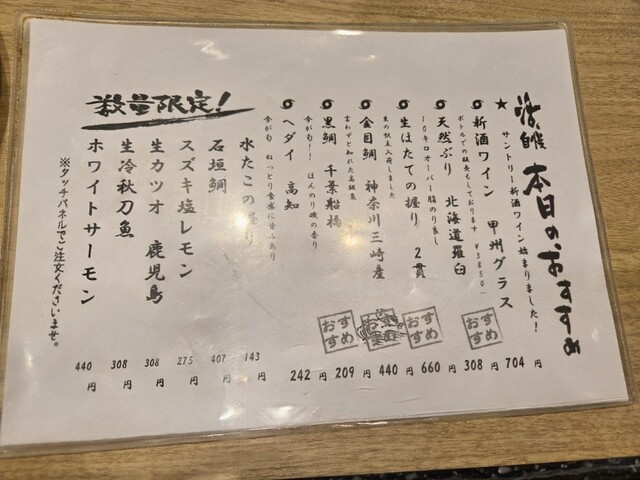 本日のおすすめ
★ サントリー新酒ワイン始まりました！
新酒ワイン 甲州グラス 704円
ボトルでの販売もしております ￥3850-
天然ぶり 北海道羅臼 308円
10キロオーバー脂のり良し
生ほたての握り 2貫 660円
金目鯛 神奈川三崎産 440円
言わずと知れた高級魚
黒鯛 千葉船橋 209円
今が旬！！ ほんのり磯の香り
ヘダイ 高知 242円
今が旬 ねっとり食感に甘みあり
おすすめ
おすすめ
おすすめ
おすすめ
数量限定！
水たこの握り 143円
石垣鯛 407円
スズキ塩レモン 275円
生カツオ 鹿児島 308円
生冷秋刀魚 308円
ホワイトサーモン 440円
※タッチパネルでご注文くださいませ。